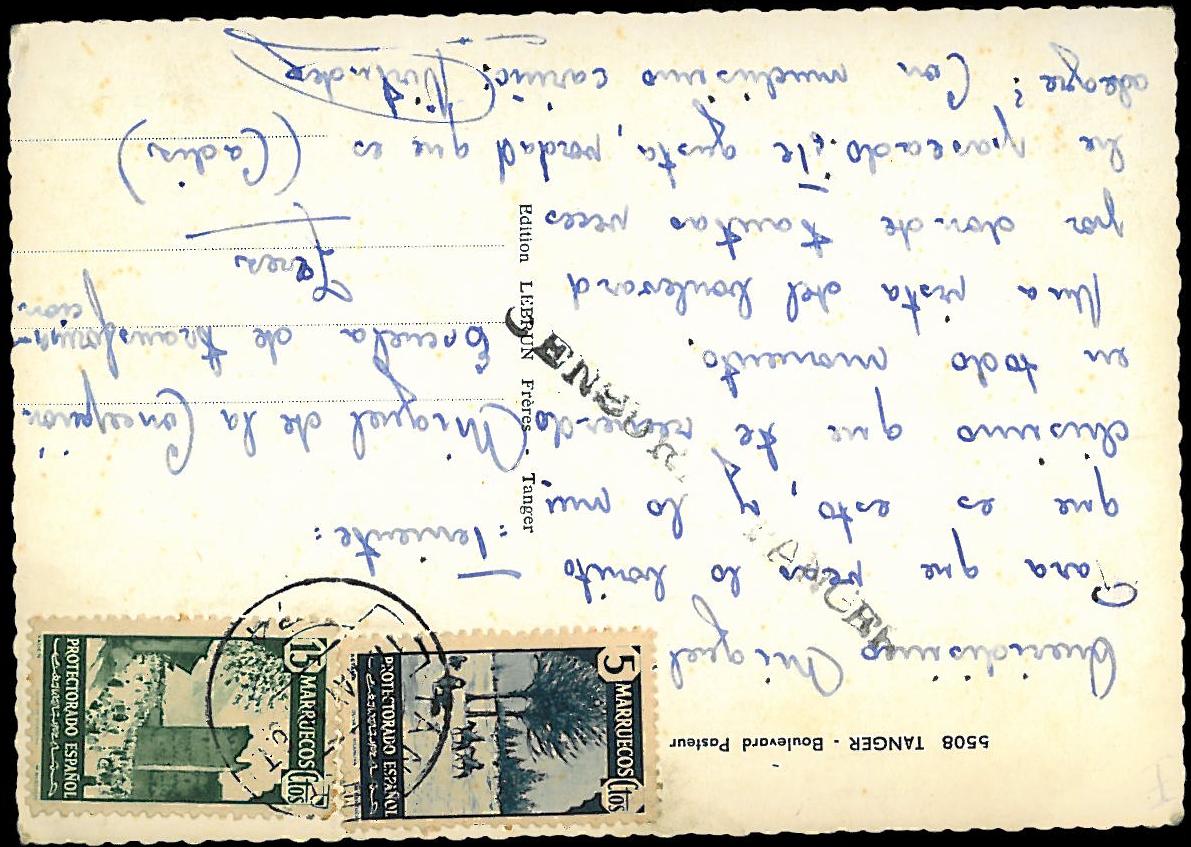 5508 TANGER - Boulevard Pasteur
Queridisimo Miguel
Para que veas lo bonito
que es esto, y lo mu
chisimo que te recuerdo
en todo momento.
Una vista del boulevard
por donde tantas veces
he paseado. ¿Te gusta, verdad que es
alegre? Con muchisimo cariño
Edition LEBRUN Frères - Tanger
CENSURA
TANGER
= Teniente =
Miguel de la Concepción
Escuela de transforma-
cion
Jerez
(Cadiz)
5 MARRUECOS Cts
PROTECTORADO ESPAÑOL
15 MARRUECOS Cts
PROTECTORADO ESPAÑOL